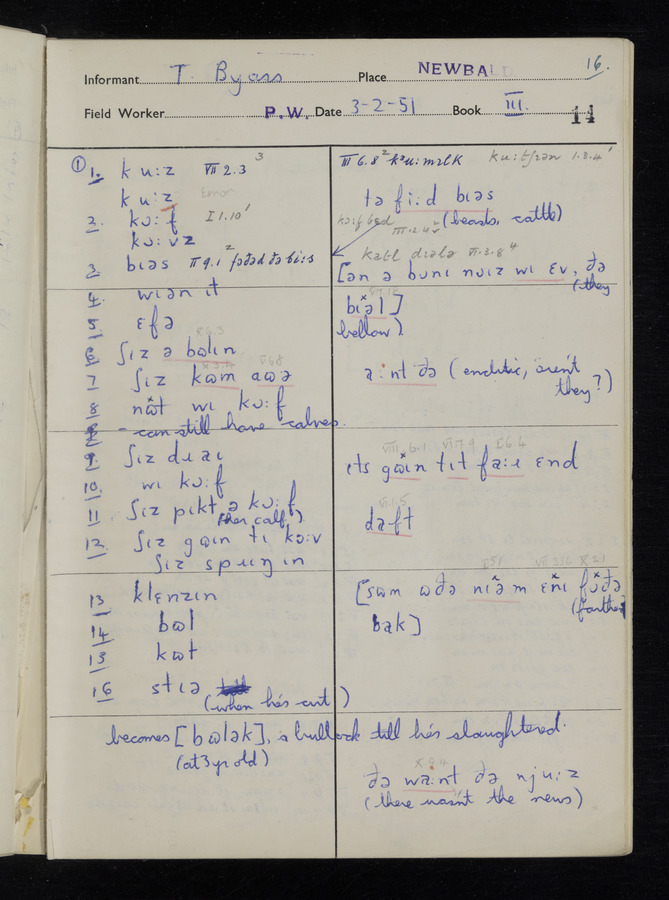 16.
Informant T. Byass Place NEWBALD
Field Worker P.W. Date 3-2-51 Book III. 14
① 1. ku:z VII 2.3 3
ku:z Error
2. kɔ:f I 1.10'
kɔ:vz
3. bɪəs
4. wɪən ɪt
5. ɛfə
6 ʃɪz ə bɷlɪn
7 ʃɪz kɷm aɷə
8 nɷt wɪ kɔ:f
- can still have calves.
9. ʃɪz dɪaɪ
10. wɪ kɔ:f
11 ʃɪz pɪkt ə kɔ:f
(her calf)
12. ʃɪz gɷɪn tɪ kɔ:v
ʃɪz spɪɪŋɪn
13 klɛnzɪn
14 bɷl
15 kɷt
16 stɪə
(when he's cut)
becomes [bɷlək], a bullock till he's slaughtered.
(at 3 yr old)
III 6.8 ku:mɪlk
tə fi:d bɪəs
(beasts, cattle)
katl
[ən ə bʊnɪ nɔɪz wɪ ɛv, ðə
(they
bɪəl]
bellow)
a:nt ðə (enclitic, aren't
they?)
VIII.6.1 VI 7.9 I 6.4
ɪts gɷɪn tɪt fa:ɪ ɛnd
daft
[sɷm ɷðə nɪəm ɛnɪ fɷðə
(farther
bak]
ðə wa:nt ðə nju:z
(there wasn't the news)